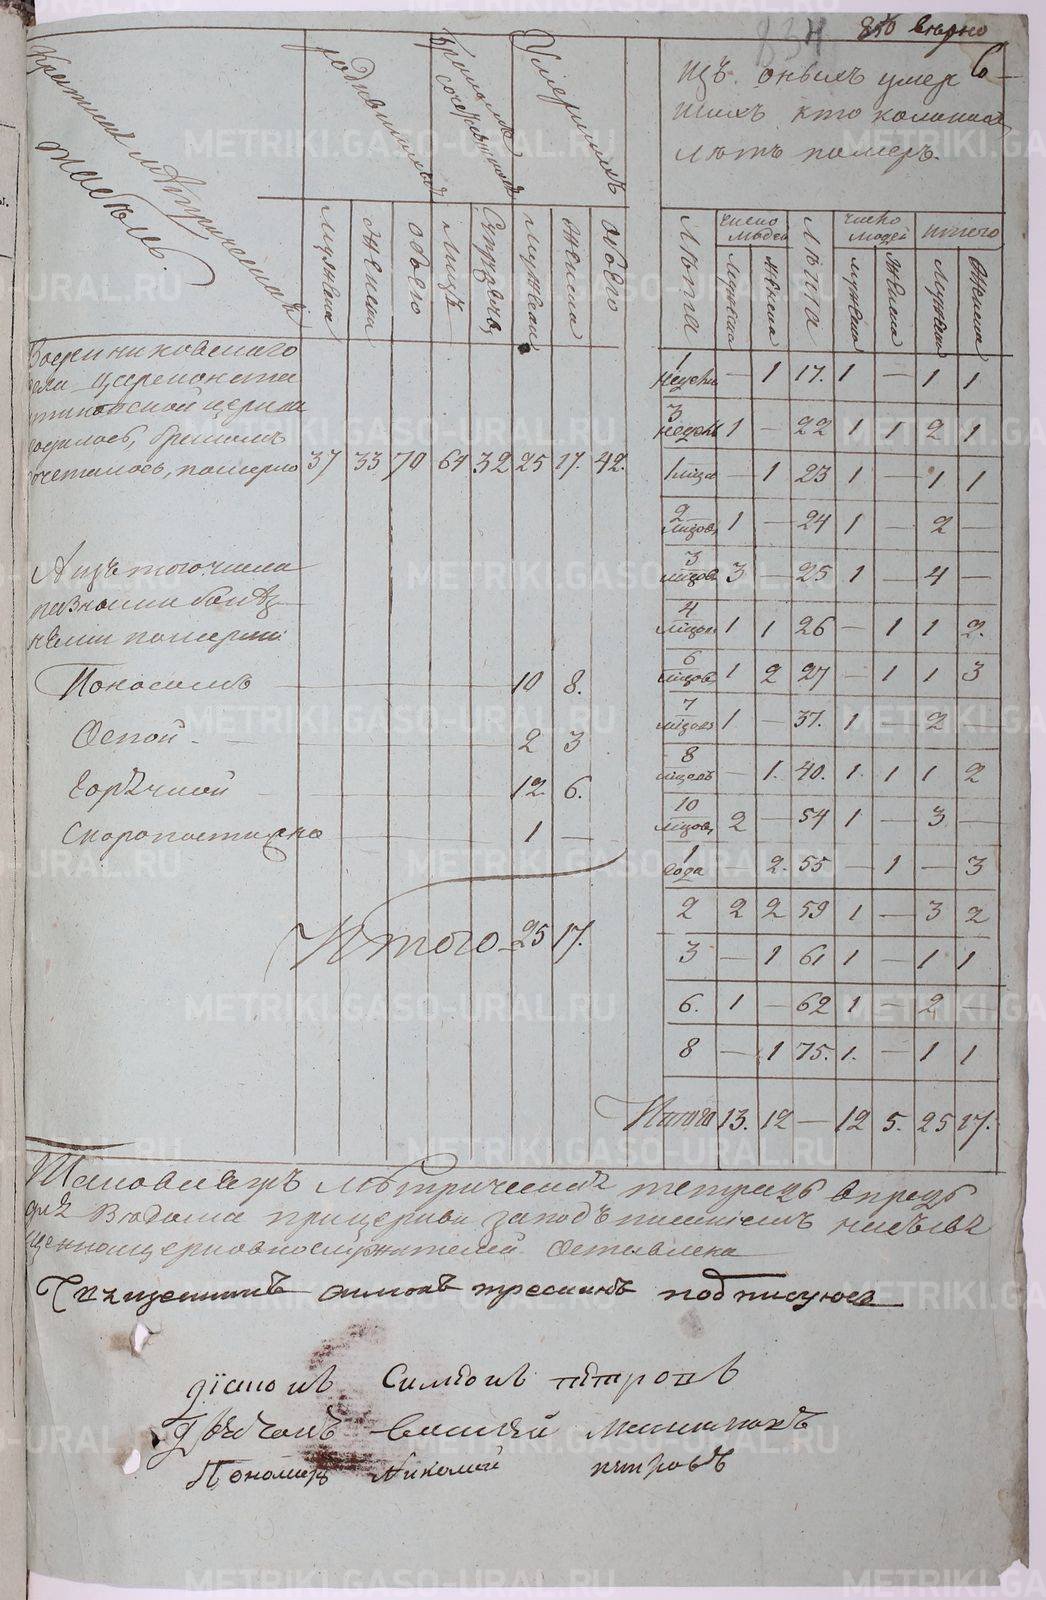 834
810 верно
6
Краткая
табель
родившихся
бракомъ сочетавшихся
Умершихъ
изъ оныхъ умер
шихъ кто колика
лѣтъ померъ.
мужска Женска обоего лицъ Супруж. мужска женска обоего
Лѣта число людей Лѣта число людей итого
мужска женска мужска женска мужска женска
села церкви
родилось, бракомъ
сочеталось, померло 37 33 70 64 32 25 17. 42.
А изъ того числа
разными болѣз
нями померли
Поносомъ 10 8.
Оспой 2 3
Горячкой 12 6.
Скоропостижно 1 —
Итого 25 17.
1 недели — 1 17. 1 — 1 1
3 недель 1 — 22 1 1 2 1
1 мцъ — 1 23 1 — 1 1
2 мцов. 1 — 24 1 — 2 —
3 мцов 3 — 25 1 — 4 —
4 мцов 1 1 26 — 1 1 2.
6 мцов. 1 2 27 — 1 1 3
7 мцов 1 — 37. 1 — 2 —
8 мцовъ — 1. 40. 1. 1 1 2
10 мцов, 2 — 54 1 — 3 —
1 года 2. 55 — 1 — 3
2 2 2 59 1 — 3 2
3 — 1 61 1 — 1 1
6. 1 — 62 1 — 2
8 — 1 75. 1. — 1 1
Итого 13. 12 — 12 5. 25 17.
Таковая метрическая тетрадь впредь
для вѣдома при церкви за подъписаніемъ
священноцерковнослужителей оставлена
Священникъ подписуюсь
діаконъ Симеонъ петровъ
Дьячокъ Василей
Пономарь Николай петровъ
METRIKI.GASO-URAL.RU